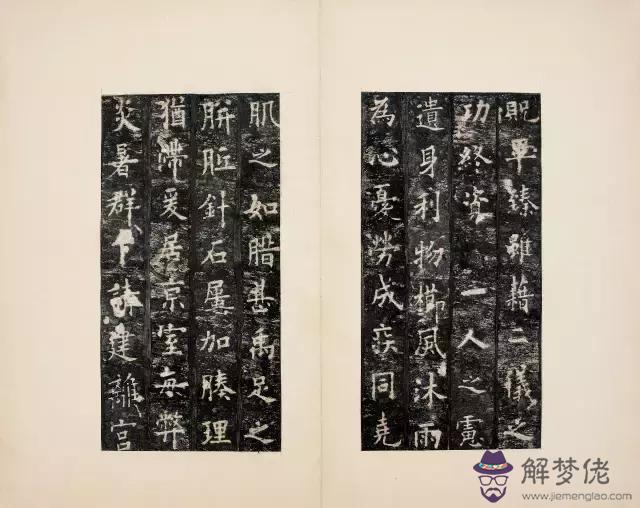 貺畢臻雖藉二儀之
功終資一人之慮
遺身利物櫛風沐雨
為心憂勞成疾同堯
肌之如腊甚禹足之
胼胝針石屢加腠理
猶滯爰居京室每弊
炎暑群下請建離宮
解梦佬
www.jiemenglao.com